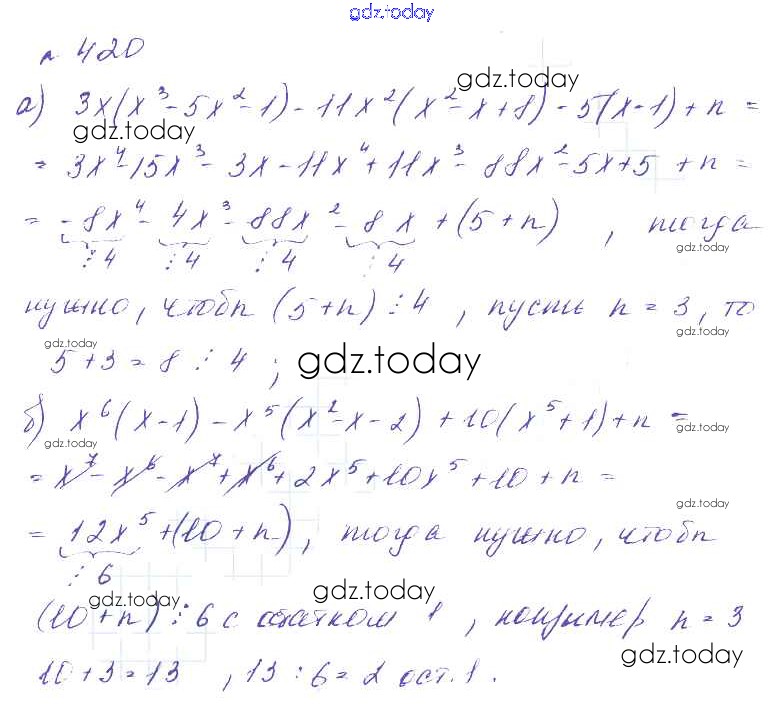 gdz.today
№ 420
gdz.today
а) 3x(x³-5x²-1)-11x²(x²-x+8)-5(x-1)+n=
gdz.today
= 3x⁴-15x³-3x-11x⁴+11x³-88x²-5x+5+n=
= -8x⁴-4x³-88x²-8x+(5+n), тогда
gdz.today
⋮4 ⋮4 ⋮4 ⋮4
нужно, чтоб n (5+n)⋮4, пусть n=3, то
gdz.today
gdz.today
5+3=8⋮4;
gdz.today
б) x⁶(x-1)-x⁵(x²-x-2)+10(x⁵+1)+n=
gdz.today
gdz.today
= x⁷-x⁶-x⁷+x⁶+2x⁵+10x⁵+10+n=
gdz.today
= 12x⁵+(10+n), тогда нужно, чтоб n
⋮6
gdz.today
gdz.today
(10+n)⋮6 с остатком 1, например n=3
gdz.today
10+3=13, 13:6=2 ост.1.